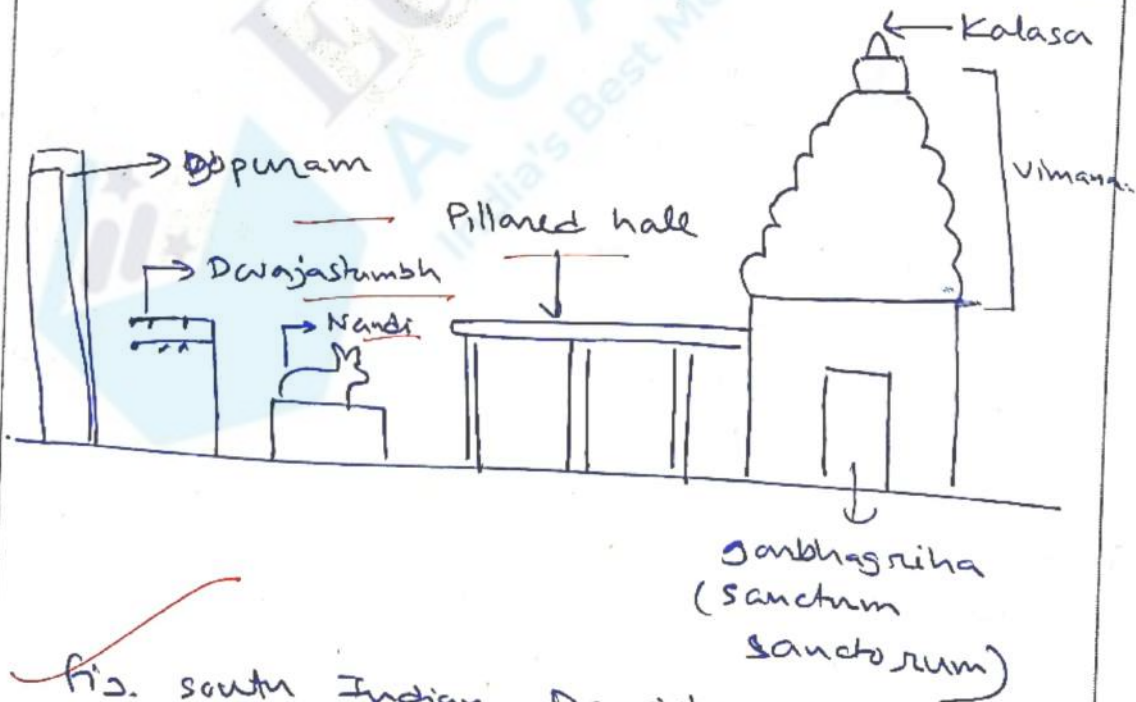 Kalasa
Gopuram
Vimana.
Pillared hall
Dwajastumbh
Nandi
garbhagriha
(sanctum
sanctorum)
fig. south Indian
India's Best